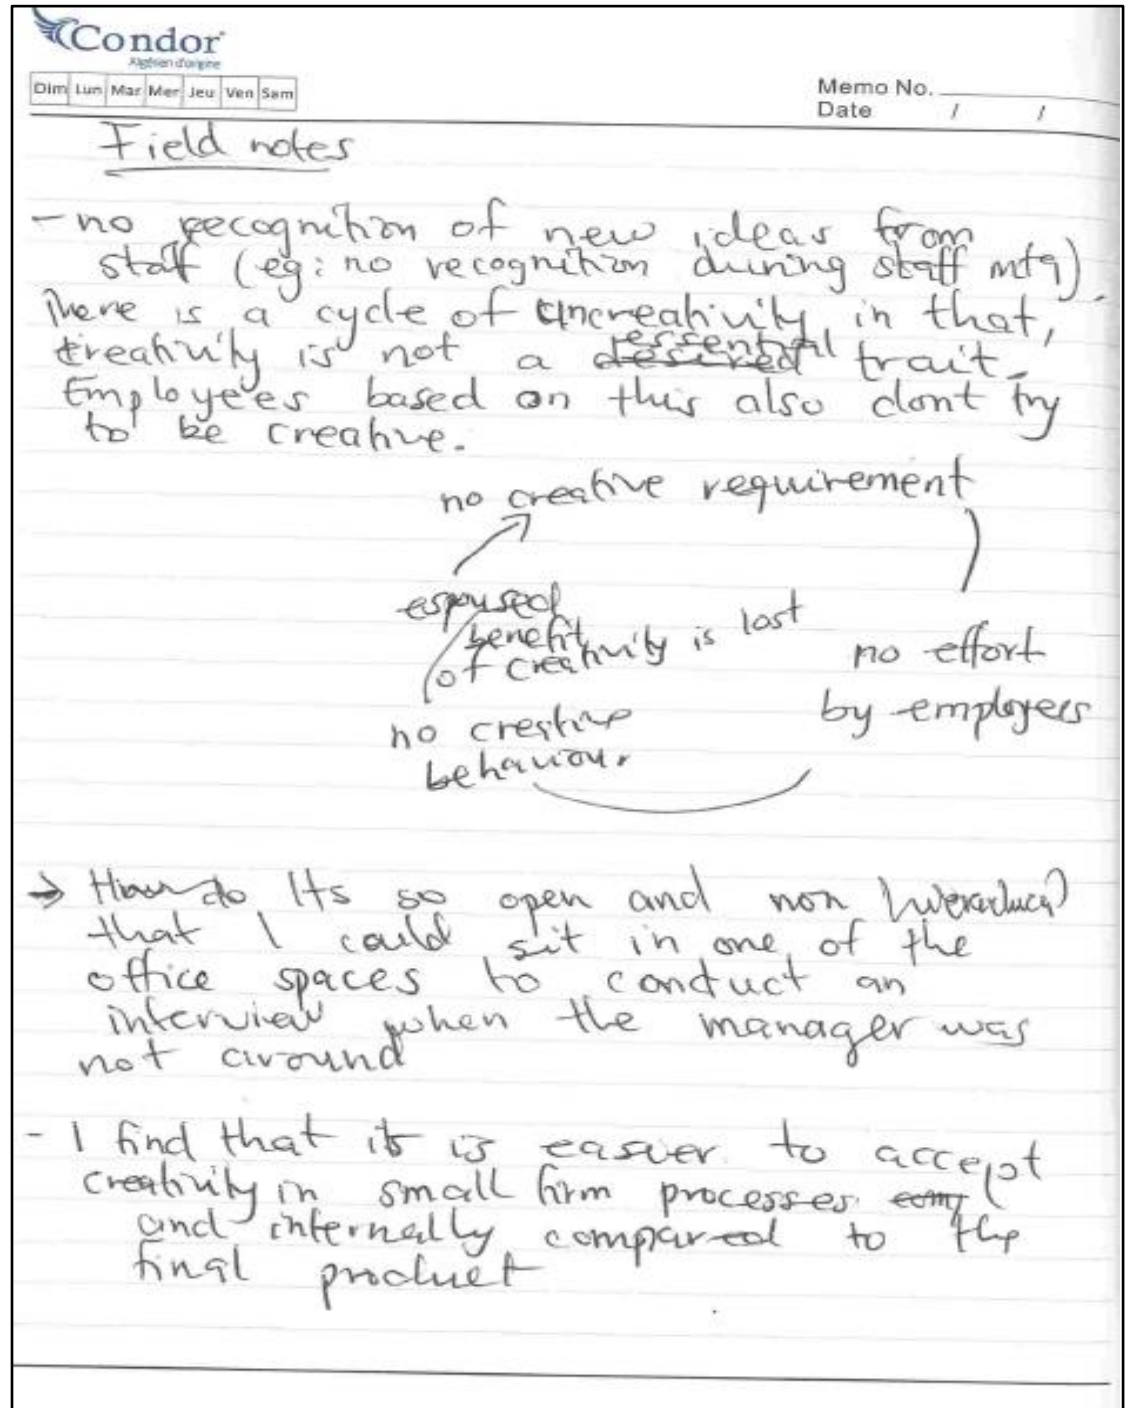 Condor
Algérien d'origine
Dim Lun Mar Mer Jeu Ven Sam
Memo No.
Date / /
Field notes
- no recognition of new ideas from
staff (eg: no recognition during staff mtg).
There is a cycle of uncreativity in that,
essential
creativity is not a desired trait.
Employees based on this also dont try
to be creative.
no creative requirement
espoused
benefit
of creativity is lost
no effort
by employees
no creative
behaviour.
→ How do Its so open and non hierarchical
that I could sit in one of the
office spaces to conduct an
interview when the manager was
not around
- I find that it is easier to accept
creativity in small firm processes
and internally compared to the
final product